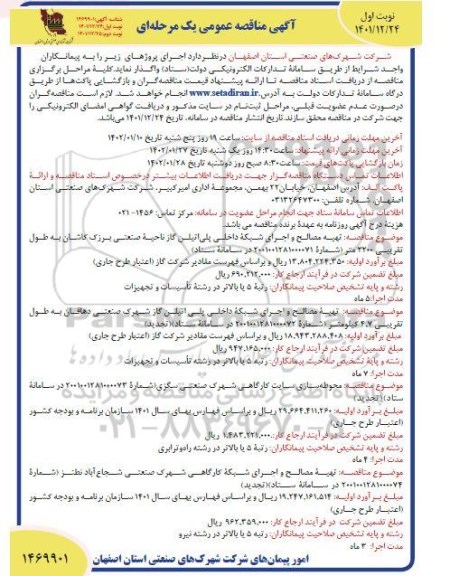 نوبت اول
۱۴۰۱/۱۲/۲۴
آگهی مناقصه عمومی یک مرحله‌ای
شناسه آگهی: ۱۴۶۹۹۰۱
نوبت اول: ۱۴۰۱/۱۲/۲۴
نوبت دوم: ۱۴۰۱/۱۲/۲۵
شرکت شهرک‌های صنعتی استان اصفهان درنظر دارد اجرای پروژه‌های زیر را به پیمانکاران
واجد شرایط از طریق سامانه تدارکات الکترونیکی دولت(ستاد) واگذار نماید. کلیهٔ مراحل برگزاری
مناقصه از دریافت اسناد مناقصه تا ارائه پیشنهاد قیمت مناقصه‌گران و بازگشایی پاکت‌ها از طریق
درگاه سامانهٔ تدارکات دولت به آدرس www.setadiran.ir انجام خواهد شد. لازم است مناقصه‌گران
درصورت عدم عضویت قبلی، مراحل ثبت‌نام در سایت مذکور و دریافت گواهی امضای الکترونیکی را
جهت شرکت در مناقصه محقق سازند. تاریخ انتشار مناقصه در سامانه، تاریخ ۱۴۰۱/۱۲/۲۴ می‌باشد.
آخرین مهلت زمانی دریافت اسناد مناقصه از سایت: ساعت ۱۹ روز پنج شنبه تاریخ ۱۴۰۲/۰۱/۱۰
آخرین مهلت زمانی ارائه پیشنهاد: ساعت ۱۴:۳۰ روز یک شنبه تاریخ ۱۴۰۲/۰۱/۲۷
زمان بازگشایی پاکت‌های قیمت: ساعت ۸:۳۰ صبح روز دوشنبه تاریخ ۱۴۰۲/۰۱/۲۸
اطلاعات تماس دستگاه مناقصه‌گزار جهت دریافت اطلاعات بیشتر درخصوص اسناد مناقصه و ارائهٔ
پاکت الف: آدرس اصفهان، خیابان ۲۲ بهمن، مجموعهٔ اداری امیرکبیر، شرکت شهرک‌های صنعتی استان
اصفهان شماره تلفن: ۰۳۱۳۲۶۴۷۳۰۰
اطلاعات تماس سامانهٔ ستاد جهت انجام مراحل عضویت در سامانه: مرکز تماس: ۱۴۵۶-۰۲۱
هزینهٔ درج آگهی روزنامه به عهدهٔ برندهٔ مناقصه می باشد.
موضوع مناقصه: تهیهٔ مصالح و اجرای شبکهٔ داخلی پلی‌اتیلن گاز ناحیهٔ صنعتی برزک کاشان به طول
تقریبی ۲۲۰۰ متر (شمارهٔ ۲۰۰۱۰۰۱۲۸۱۰۰۰۰۷۱ در سامانهٔ ستاد)
مبلغ برآورد اولیه: ۱۳.۸۰۴.۲۲۴.۳۵۰ ریال و براساس فهرست مقادیر شرکت گاز (اعتبار طرح جاری)
مبلغ تضمین شرکت در فرآیند ارجاع کار: ۶۹۰.۲۱۲.۰۰۰ ریال
رشته و پایه تخصیص صلاحیت پیمانکاران: رتبهٔ ۵ یا بالاتر در رشتهٔ تأسیسات و تجهیزات
مدت اجرا: ۵ ماه
موضوع مناقصه: تهیهٔ مصالح و اجرای شبکهٔ داخلی پلی اتیلن گاز شهرک صنعتی دهاقان به طول
تقریبی ۴.۷ کیلومتر (شمارهٔ ۲۰۰۱۰۰۱۲۸۱۰۰۰۰۷۲ در سامانهٔ ستاد)(تجدید)
مبلغ برآورد اولیه: ۱۸.۹۴۳.۲۸۸.۴۰۸ ریال و براساس فهرست مقادیر شرکت گاز (اعتبار طرح جاری)
مبلغ تضمین شرکت در فرآیند ارجاع کار: ۹۴۷.۱۶۵.۰۰۰ ریال
رشته و پایه تخصیص صلاحیت پیمانکاران: رتبهٔ ۵ یا بالاتر در رشته تأسیسات و تجهیزات
مدت اجرا: ۷ ماه
موضوع مناقصه: محوطه‌سازی سایت کارگاهی شهرک صنعتی سگزی (شمارهٔ ۲۰۰۱۰۰۱۲۸۱۰۰۰۰۷۳ در سامانهٔ
ستاد)(تجدید)
مبلغ برآورد اولیه: ۲۹.۶۶۴.۴۱۱.۲۶۰ ریال و براساس فهارس بهای سال ۱۴۰۱ سازمان برنامه و بودجه کشور
(اعتبار طرح جاری)
مبلغ تضمین شرکت در فرآیند ارجاع کار: ۱.۴۸۳.۲۲۱.۰۰۰ ریال
رشته و پایه تخصیص صلاحیت پیمانکاران: رتبهٔ ۵ یا بالاتر در رشته راه‌وترابری
مدت اجرا: ۴ ماه
موضوع مناقصه: تهیهٔ مصالح و اجرای شبکهٔ کارگاهی شهرک صنعتی شجاع‌آباد نطنز (شمارهٔ
۲۰۰۱۰۰۱۲۸۱۰۰۰۰۷۴ در سامانهٔ ستاد)(تجدید)
مبلغ برآورد اولیه: ۱۹.۲۴۷.۱۶۱.۵۱۴ ریال و براساس فهارس بهای سال ۱۴۰۱ سازمان برنامه و بودجه کشور
(اعتبار طرح جاری)
مبلغ تضمین شرکت در فرآیند ارجاع کار: ۹۶۲.۳۵۹.۰۰۰ ریال
رشته و پایه تخصیص صلاحیت پیمانکاران: رتبهٔ ۵ یا بالاتر در رشته نیرو
مدت اجرا: ۳ ماه
امور پیمان‌های شرکت شهرک‌های صنعتی استان اصفهان
۱۴۶۹۹۰۱
۰۲۱-۸۸۳۴۹۶۷۰-۵